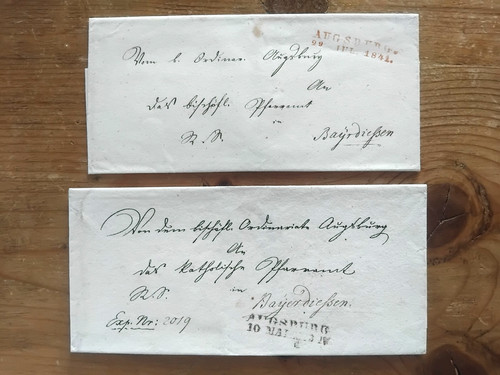 AUGSBURG.
22 JUL. 1841.
Vom b. Ordinar. Augsburg
An
das bischöfl. Pfarramt
in
R. S. Bayrdießen
Von dem bischöfl. Ordinariate Augsburg
An
das katholische Pfarramt
R. S. in
Bayerdiessen.
Exp. Nr: 2019
AUGSBURG
10 MAI